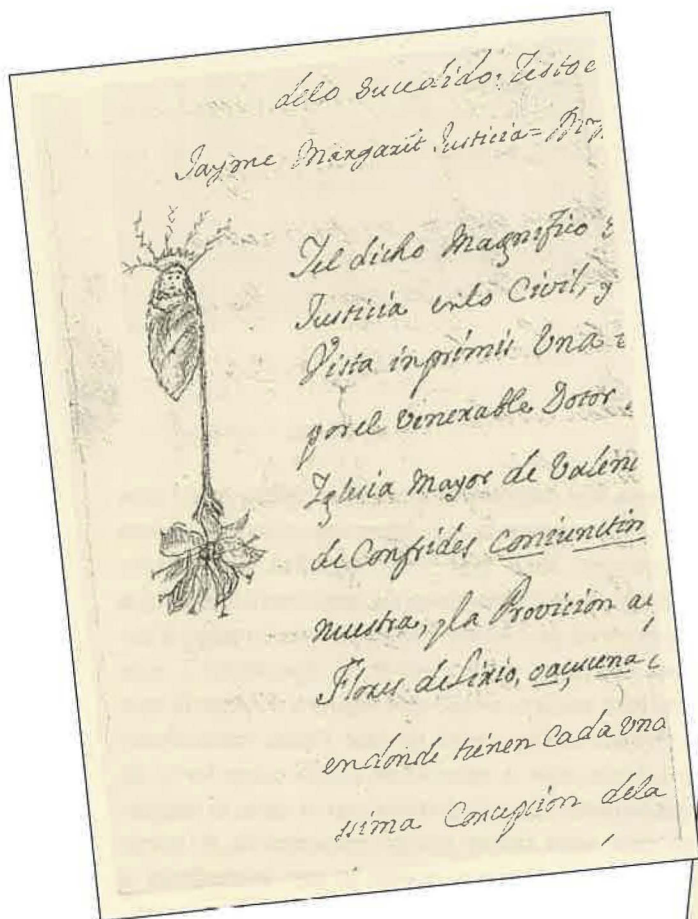 delo Sucedido. Testo
Jayme Margarit Justicia=
Jel dicho Magnifico
Justicia enlo Civil, y
Vista inprimis Una
porel Venerable Dotor
Iglesia Mayor de Valen
de Confrides coniunctim
nuestra, yla Provición a
Flores deLirio, oaçucena
endonde tienen Cada Una
ssima Concepcion dela